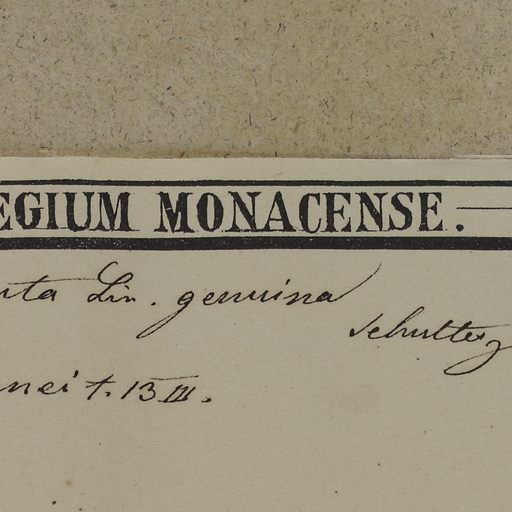 EGIUM MONACENSE.
uta Lin. genuina
Schultes
nei t. 13 III.